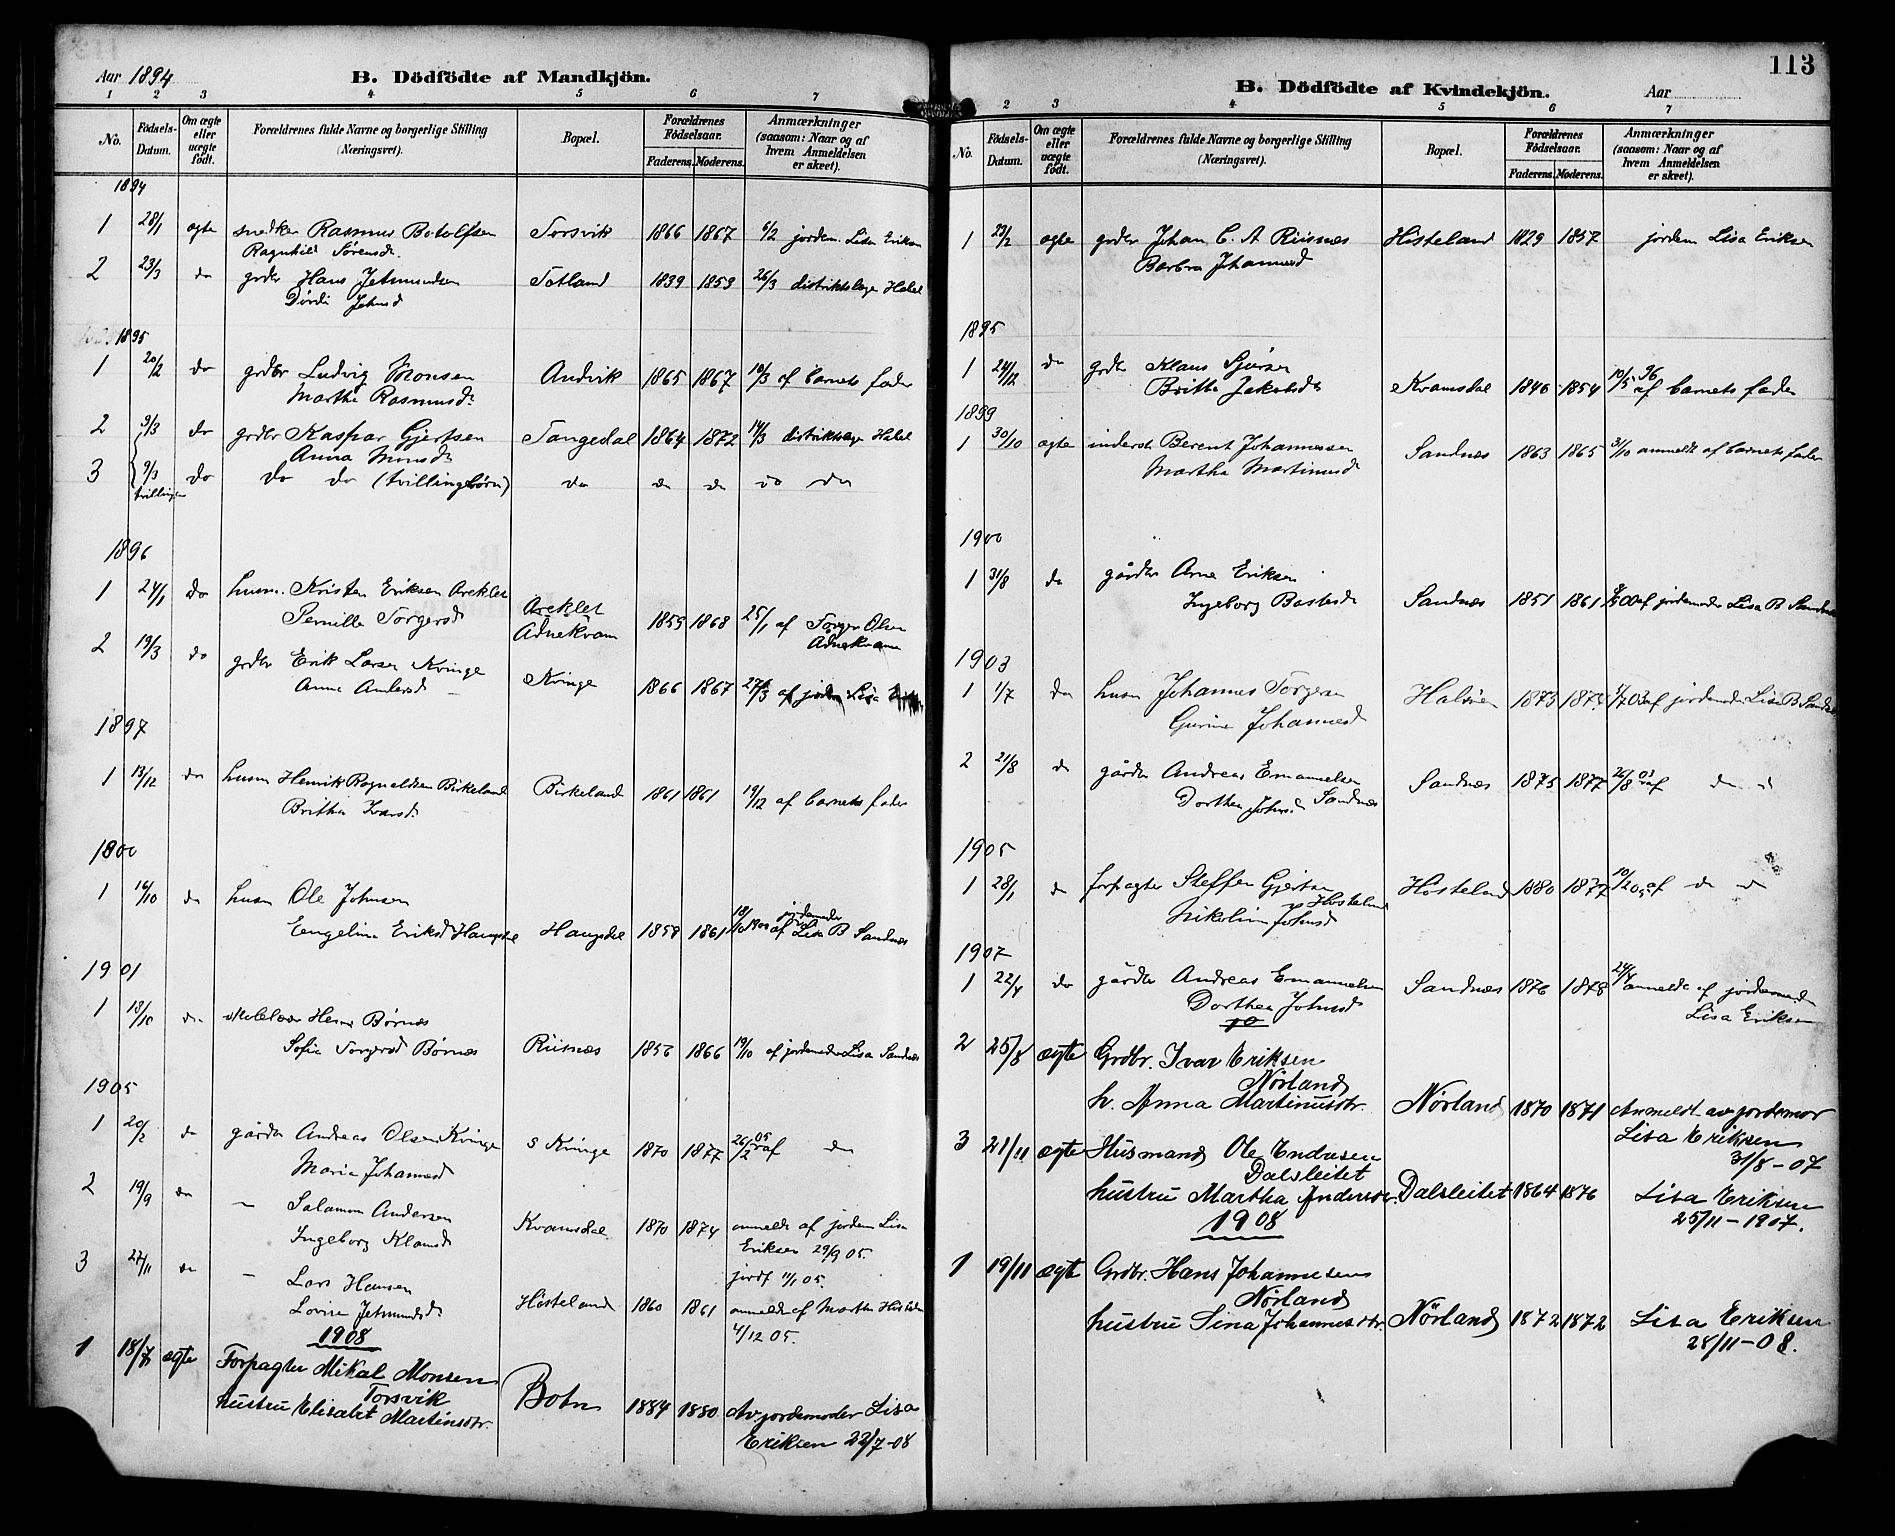 Aar 1894
B. Dödfödte af Mandkjön.
1 2 3 4 5 6 7
No.
Födsels-Datum.
Om ægte eller uægte født.
Forældrenes fulde Navne og borgerlige Stilling (Næringsvei).
Bopæl.
Forældrenes Födselsaar.
Faderens. Moderens.
Anmærkninger (saasom: Naar og af hvem Anmeldelsen er skeet).
1894
1 28/1 ægte snedker Rasmus Botolfsen Torsvik 1866 1867 6/2 jordem. Lisa Eriksen
Ragnhild Sørensd.
2 23/3 do grdbr Hans Jetmundsen Totland 1839 1853 26/3 distriktslæge Habel
Dordi Jetmd
1895
1 20/2 do grdbr Ludvig Monsen Andvik 1865 1867 10/3 af barnets fader
Martha Rasmusd.
2 9/3 do grdbr Kaspar Gjertsen Tangedal 1864 1872 14/3 distriktslæge Habel
Anna Monsd.
3 9/3 do do do (tvillingbørn) do do do do do
tvillinger
1896
1 24/1 do husm. Kristen Eriksen Areklet Areklet
Pernille Torgersd Adnekvam 1855 1868 25/1 af Torger Olsen
Adnekvam
2 19/3 do grdbr Erik Larsen Kvinge Kvinge 1866 1867 27/3 af jordm Lisa
Anna Andersd
1897
1 13/12 do husm Henrik Ragnaldsen Birkeland Birkeland 1861 1861 19/12 af barnets fader
Britha Ivarsd.
1800
1 16/10 do husm Ole Johnsen
Engeline Eriksd Haugsdal Haugsdal 1858 1861 18/10 1900 af jordemoder Lisa B Sandnæs
1901
1 13/10 do skolelærer Børnæs
Sofie Torgersd Børnæs Riisnæs 1866 19/10 af jordemoder Lisa Sandnæs
1905
1 20/2 do gårdbr Andreas Olsen Kvinge S Kvinge 1870 1877 26/2 05 af do
Marie Johannesd
2 19/9 do — Salamon Andersen
Ingeborg Klausd Kvamsdal 1870 1874 anmeldt af jordem Lisa
Eriksen 29/9 05.
3 27/11 do — Lars Hansen
Lovise Jetmundsd. Hösteland 1860 1861 anmeldt af Martha
4/12 05.
1908
1 18/7 ægte Forpagter Mikal Monsen
Torsvik
hustru Elisabet Martinsdtr. Botn 1884 1880 Av jordemoder Lisa
Eriksen 22/7-08
113
B. Dödfödte af Kvindekjön.
Aar
2 3 4 5 6 7
No.
Födsels-Datum.
Om ægte eller uægte födt.
Forældrenes fulde Navne og borgerlige Stilling (Næringsvei).
Bopæl.
Forældrenes Födselsaar.
Faderens. Moderens.
Anmærkninger (saasom: Naar og af hvem Anmeldelsen er skeet).
1 23/2 ægte grdbr Johan C. A Riisnæs Histeland 1829 1857 jordem Lisa Eriksen
Barbra Johannesd
1895
1 24/12 do grdbr Klaus Sjursen
Britha Jakobsd. Kvamsdal 1846 1854 10/5 96 af barnets fader
1899
1 30/10 ægte inderst Berent Johannessen Sandnæs 1863 1865 31/10 anmeldt af barnets fader
Martha Martinusd
1900
1 31/8 do gårdbr Arne Eriksen
Ingeborg Sandnæs 1851 1861 af jordemoder Lisa B Sandnæs
1903
1 1/7 do husm Johannes Torgersen Halsøen 1873 af jordemoder Lisa B Sandnæs
Gurine Johannesd
2 21/8 do gårdbr Andreas Emanuelsen Sandnæs 1875 1877 26/8 03 af do do
Dorthea Johnsd. Sandnæs
1905
1 28/1 do forpagter Steffen Gjertsen Hösteland Hösteland 1880 1877 af do do
Nikoline Johnsd
1907
1 22/4 do gårdbr Andreas Emanuelsen Sandnæs 1876 1878 24/4 anmeldt af jordemoder
Dorthea Johnsd Lisa Eriksen
2 25/8 ægte Grdbr. Ivar Eriksen
Nörland
h. Anna Martinusdtr. Nörland 1870 1871 Anmeldt av jordemor
Lisa Eriksen
31/8-07
3 21/11 ægte Husmand Ole Endresen
Dalsleitet
hustru Martha Andersdr. Dalsleitet 1864 1876 Lisa Eriksen
25/11-1907.
1908
1 19/11 ægte Grdbr. Hans Johannesen
Nörland
hustru Sina Johannesdtr. Nörland 1872 1872 Lisa Eriksen
28/11-08.